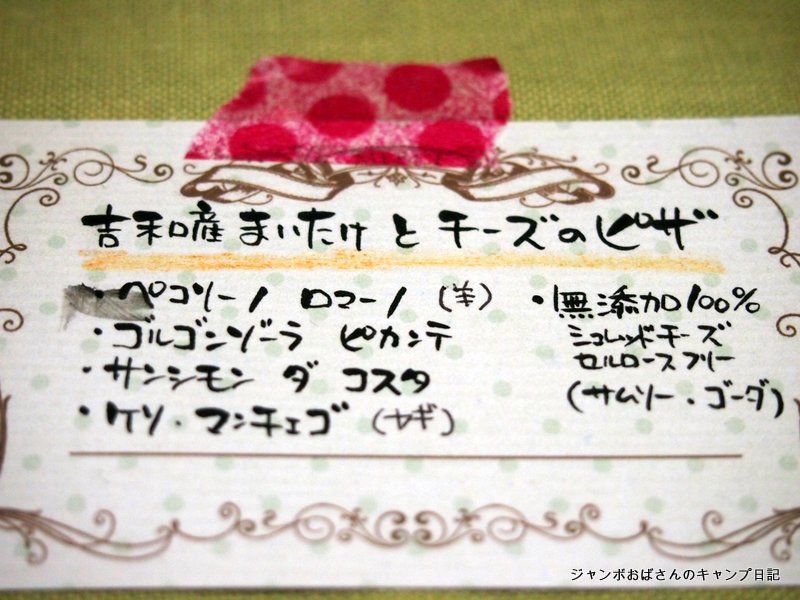 吉和産まいたけとチーズのピザ
・ペコリーノ ロマーノ (羊)
・ゴルゴンゾーラ ピカンテ
・サンシモン ダ コスタ
・ケソ・マンチェゴ (ヤギ)
・無添加100%
シュレッドチーズ
セルロースフリー
(サムソー・ゴーダ)
ジャンボおばさんのキャンプ日記